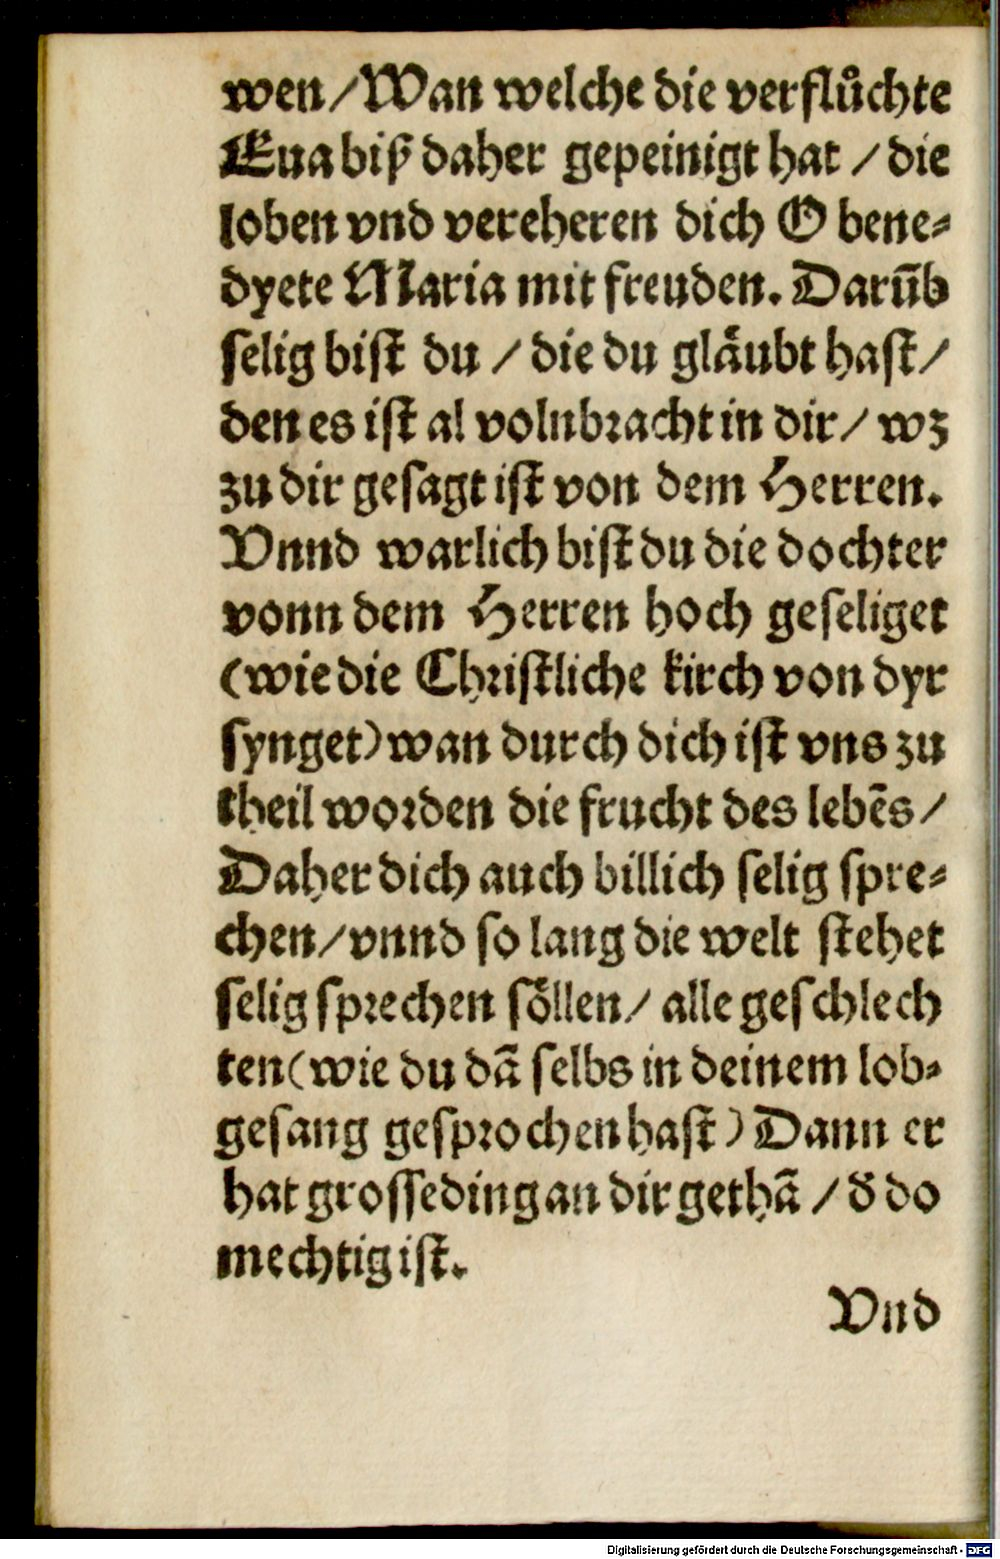 wen/Wan welche die verflůchte
Eua biß daher gepeinigt hat / die
loben vnd vereheren dich O bene⸗
dyete Maria mit freuden. Darūb
ſelig biſt du / die du glaͤubt haſt/
den es iſt al volnbꝛacht in dir/ wz
zu dir geſagt iſt von dem Herren.
Vnnd warlich biſt du die dochter
vonn dem Herren hoch geſeliget
(wie die Chꝛiſtliche kirch von dyr
ſynget) wan durch dich iſt vns zu
theil woꝛden die frucht des lebēs/
Daher dich auch billich ſelig ſpre⸗
chen/vnnd ſo lang die welt ſtehet
ſelig ſpꝛechen ſoͤllen/ alle geſchlech
ten(wie du dā ſelbs in deinem lob⸗
geſang geſpꝛochen haſt) Dann er
hat groſſe ding an dir gethā / d̄ do
mechtig iſt.
Vnd
Digitalisierung gefördert durch die Deutsche Forschungsgemeinschaft - DFG